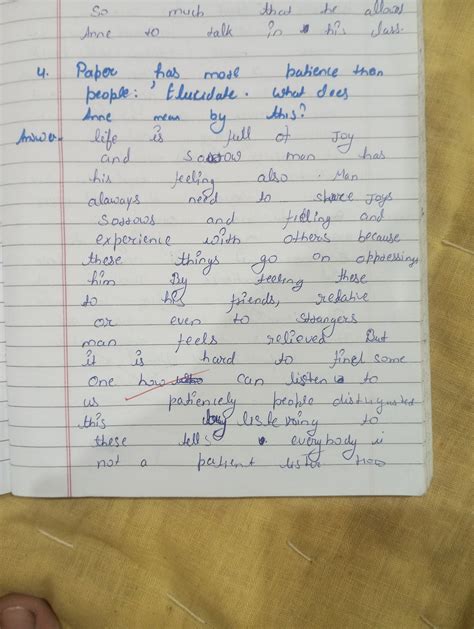 So much that he allows
Anne to talk in his class.
4. Paper has more patience than
people: 'Elucidate. what does
Anne mean by this?
Answer- life is full of Joy
and sorrow man has
his feeling also . Man
alaways need to share Joys
sorrows and filling and
experience with others because
these things go on oppressing
him By teeling these
to his friends, relative
or even to strangers
man feels relieved But
it is hard to find some
one how can listen to
us patiencely people
this listening to
these tells everybody is
not a patient